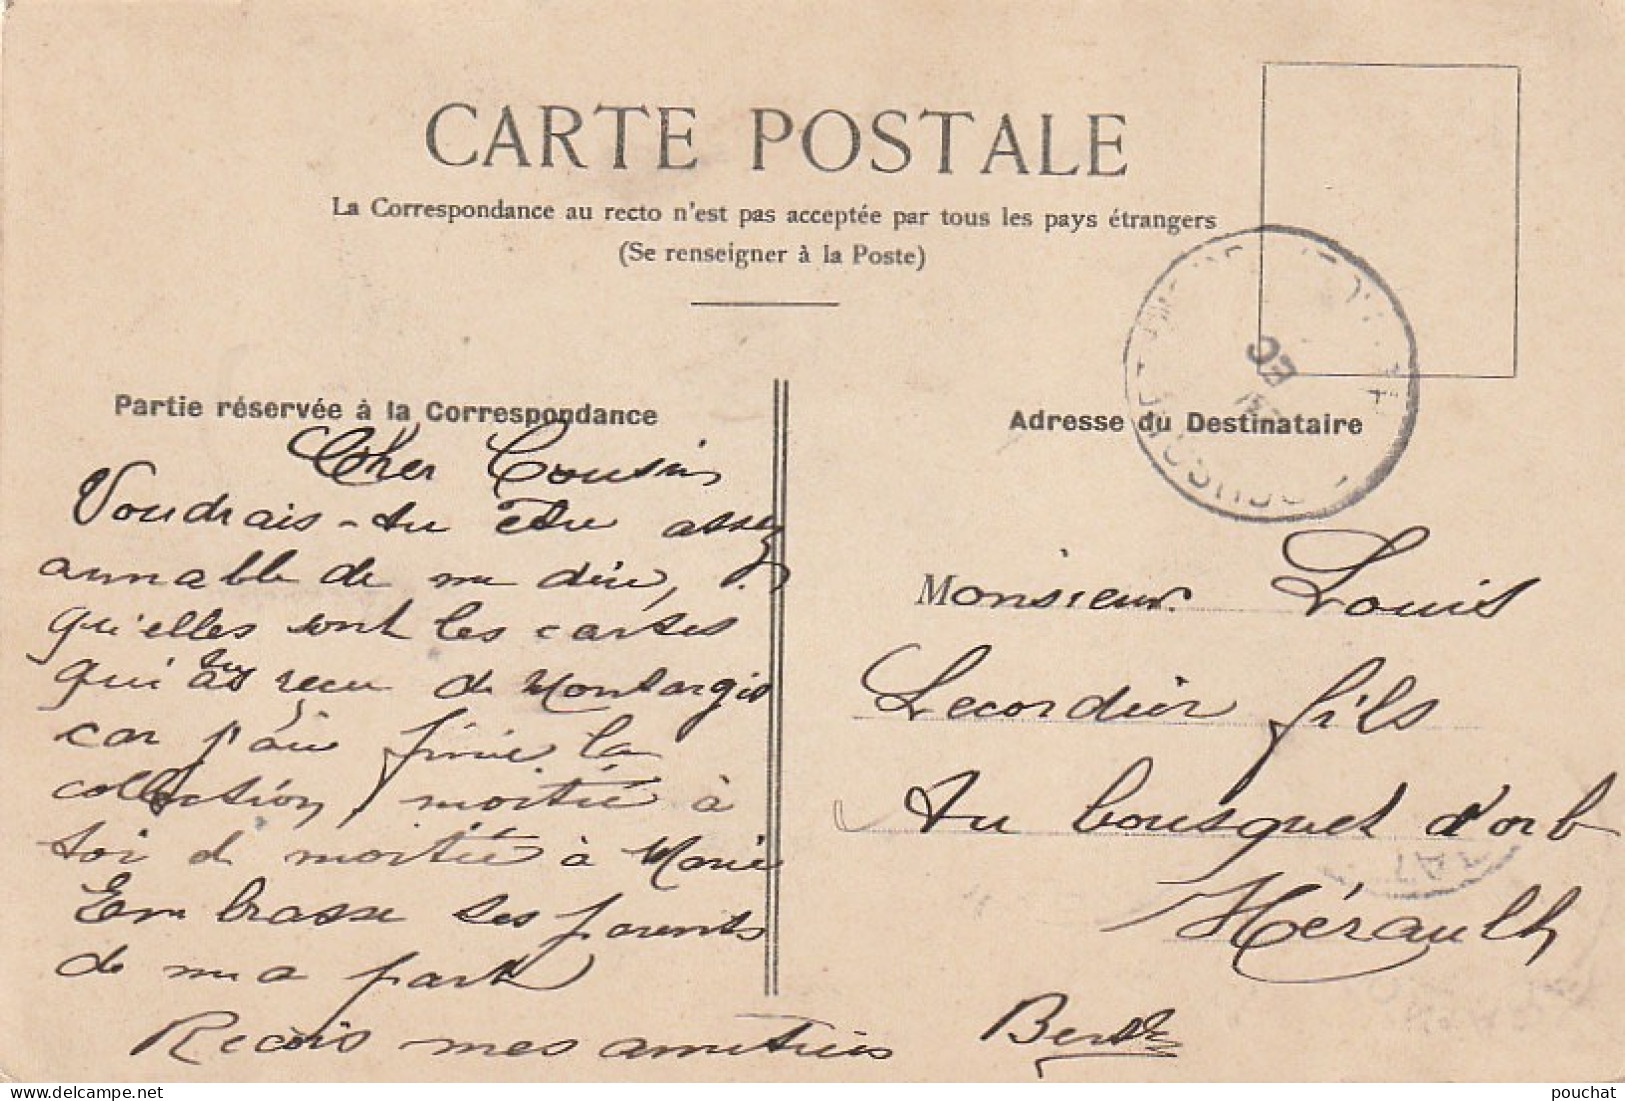 CARTE POSTALE
La Correspondance au recto n'est pas acceptée par tous les pays étrangers
(Se renseigner à la Poste)
Partie réservée à la Correspondance
Cher Cousin
Voudrais-tu être assez
aimable de me dire,
qu'elles sont les cartes
qui tu as reçu de Montargis
car j'ai finie la
collection, moitié à
toi et moitié à Marie
Embrasse tes parents
de ma part
Recois mes amitiés
Berthe
Adresse du Destinataire
Monsieur Louis
Lecordier fils
Au bousquet d'orb
Hérault
pouchat